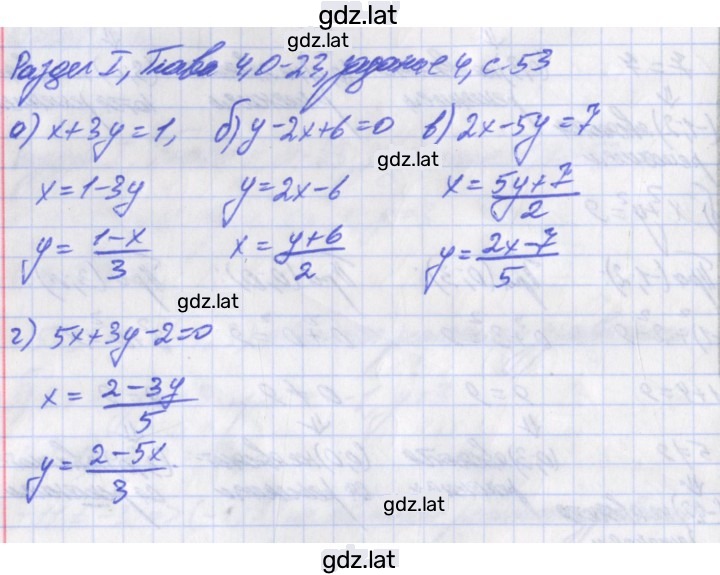 gdz.lat
Раздел I, Глава 4, О-23, задание 4, с. 53
а) x+3y=1, б) y-2x+6=0 в) 2x-5y=7
gdz.lat
x=1-3y y=2x-6 x=\frac{5y+7}{2}
y=\frac{1-x}{3} x=\frac{y+6}{2} y=\frac{2x-7}{5}
gdz.lat
г) 5x+3y-2=0
x=\frac{2-3y}{5}
y=\frac{2-5x}{3}
gdz.lat
gdz.lat